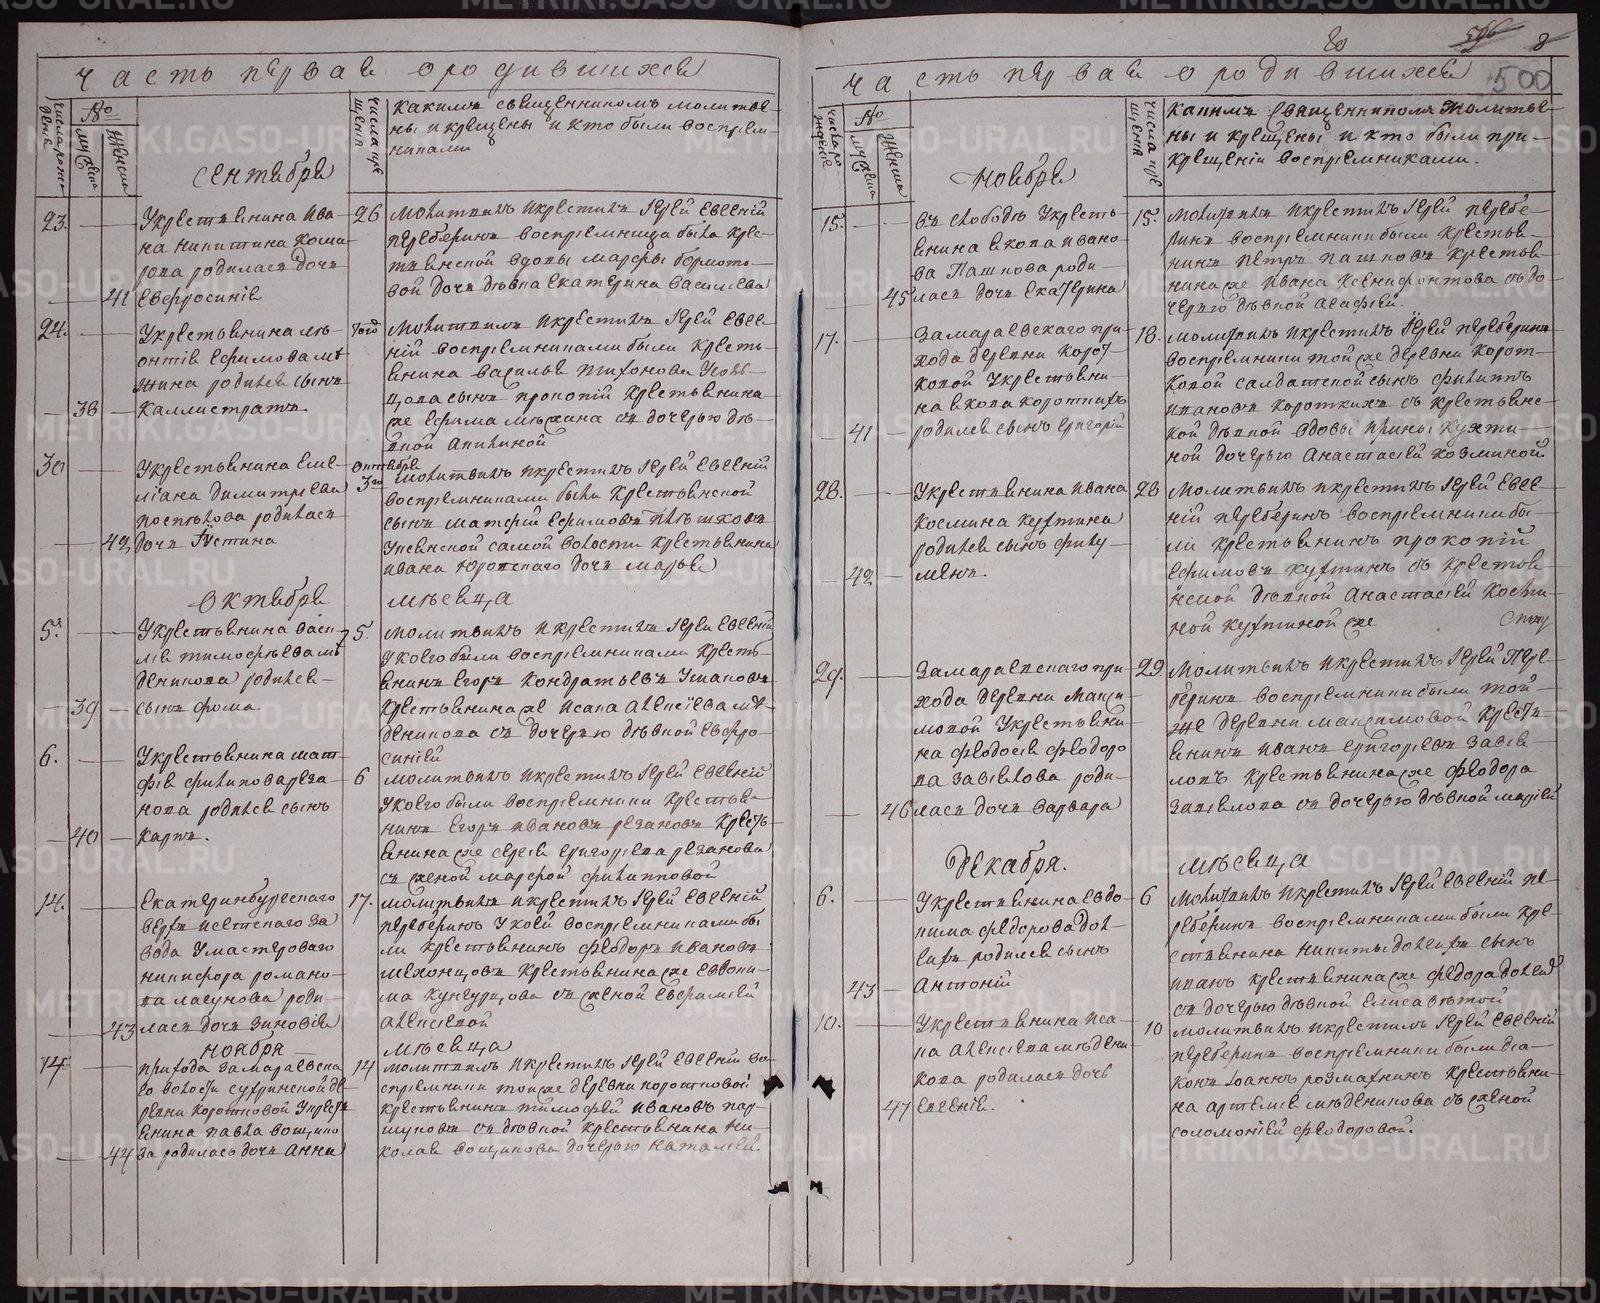 80 8
500
часть первая о родившихся
числа рождения
№
мужеска
женска
числа крещения
какимъ священникомъ молитве-
ны и крещены и кто были воспрiем-
никами
сентября
23. Укрестьянина Ива-
на никитина кома-
рова родилася дочь
41 Евфросинiя
26 молитвилъ икрестилъ Iерей Евгенiй
Переберинъ воспрiемница была кре-
тьянской вдовы марфы
вой дочь девка Екатерина васильева
24. Укрестьянина ле-
онтiя Ефимова
родился сынъ
38 Каллистратъ
того молитвилъ икрестилъ Iерей Евге-
нiй воспрiемниками были кресть-
янина василья тихонова
сынъ прокопiй крестьянина
же Ефима с дочерью де-
вкой
30 Укрестьянина Еме-
лiана Димитрiева
поспелова родилася
42 дочь Iустина
октября
3го молитвилъ икрестилъ Iерей Евгенiй
воспрiемниками были крестьянской
сынъ матфiй Ефимовъ
самой волости крестьянина
Ивана дочь марья
Октября мѣсяца
5. Укрестьянина васи-
лiя тимофеева мѣ
деникова родился
39 сынъ фома.
5. молитвилъ икрестилъ Iерей Евгенiй
укоего были воспрiемниками кресть-
янинъ Егоръ Кондратьевъ Ушаковъ
крестьянина же Исака Алексiева мѣ
деникова съ дочерью девкой Евфро-
синiей
6. Укрестьянина мат-
фiя филипова реза-
нова родился сынъ
40 Карпъ.
6 молитвилъ икрестилъ Iерей Евгенiй
укоего были воспрiемники крестья-
нинъ Егоръ ивановъ резановъ кресть-
янина же сергiя григорiева резанова
съ женой марфой филипповой
14. Екатеринбургскаго
верх исетскаго за
вода Умастероваго
никифора романо-
ва ласунова роди-
43 лася дочь Зиновiя
17. молитвилъ икрестилъ Iерей Евгенiй
переберинъ Укоей воспрiемниками бы
ли крестьянинъ федоръ ивановъ
крестьянина же Евдоки-
ма съ женой Евфимiей
Алексiевой
ноября мѣсяца
14 прихода замараевска
го волости сухринской де
ревни коротковой Укресть
янина павла вощико
44 ва родилась дочь Анна
14 молитвилъ икрестилъ Iерей Евгенiй во-
спрiемники тоя же деревни коротковой
крестьянинъ тимофей Ивановъ пар-
шуковъ съ девкой крестьянина ни-
колая вощикова дочерью наталiей.
часть первая о родившихся
числа рожденiе
№
мужеска
женска
числа крещенiя
Какимъ священникомъ молитве-
ны и крещены и кто были при
крещенiи воспрiемниками.
Ноября
15. въ слободѣ Укресть-
янина якова ивано-
ва Пашкова роди-
45 лася дочь Екатерина
15. молитвилъ икрестилъ Iерей Перебе-
ринъ воспрiемники были крестья-
нинъ петръ пашковъ крестья-
нина же ивана Ксенифонтова съ до-
черью девкой агафьей.
17. Замараевскаго при-
хода деревни корот-
ковой Укрестьяни-
на якова короткихъ
41 родился сынъ григорiй
18. молитвилъ икрестилъ Iерей переберинъ
воспрiемники той же деревни корот-
ковой салдатской сынъ филиппъ
ивановъ короткихъ съ крестьянс-
кой девкой вдовы ирины кухти-
ной дочерью Анастасiей козминой
28. Укрестьянина Ивана
Космина кухтина
родился сынъ филу-
42 менъ.
28 молитвилъ икрестилъ Iерей Евге-
нiй переберинъ воспрiемники бы-
ли крестьянинъ прокопiй
Ефимовъ кухтинъ съ крестья-
нской девкой Анастасiей Косми-
ной кухтиной же
29. Замараевскаго при
хода деревни Макси-
мовой Укрестьяни-
на феодосiя феодоро
ва завьялова роди-
46 лася дочь варвара
29. Молитвилъ икрестилъ Iерей Пере-
беринъ воспрiемники были той-
же деревни максимовой кресть-
янинъ иванъ григорiевъ завья-
ловъ крестьянина же феодора
завялова съ дочерью девкой марiей
Декабря. мѣсяца
6. Укрестьянина евдо-
кима федорова дол-
гихъ родился сынъ
43 Антонiй
6 Молитвилъ икрестилъ Iерей Евгенiй пе-
реберинъ воспрiемниками были кре-
стьянина никиты долгихъ сынъ
иванъ крестьянина же федора долгихъ
съ дочерью девкой елисаветой
10. Укрестьянина иса-
ка алексiева мѣдени-
кова родилася дочь
47 Евгенiя.
10 молитвилъ икрестилъ Iерей Евгенiй
переберинъ воспрiемники были дiа-
конъ Iоаннъ розмахнинъ крестьяни-
на артемiя мѣденикова съ женой
соломонiей феодоровой.